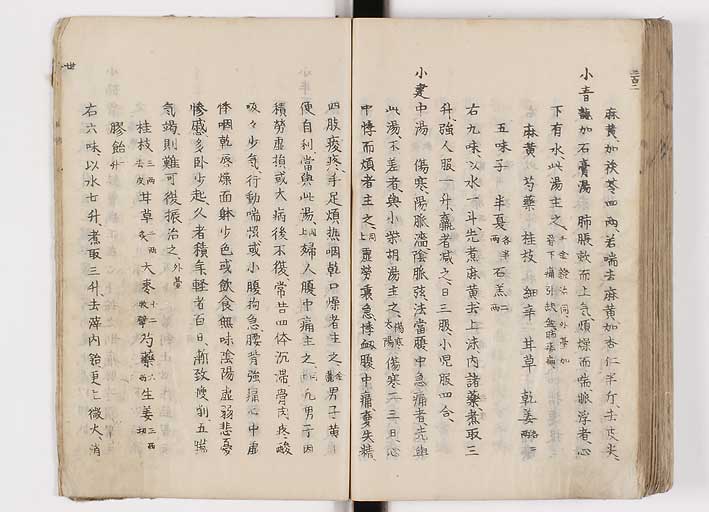 麻黄加茯苓四両若喘去麻黄加杏仁半斤去皮尖
小青龍加石膏湯 肺脹欬而上气煩燥而喘脉浮者心
下有水此湯主之
麻黄 芍薬 桂枝 細辛 甘草 乾姜各三両
五味子 半夏各半両 石羔二両
右九味以水一斗先煮麻黄去上沫内諸薬煮取三
升強人服一升羸者减之日三服小児服四合
小建中湯 傷寒陽脈濇陰脈弦法當腹中急痛者先與
此湯不差者與小柴胡湯主之 傷寒二三日心
中悸而煩者主之同上 虚勞裏急悸衂腹中痛夢失精
四肢痠疼手足煩熱咽乾口燥者主之 男子黄
便自利當與此湯同上 婦人腹中痛主之同 凡男子因
積勞虚損或大病後不復常苦四体沉滞骨肉疼酸
吸々少气行動喘惙或小腹拘急腰背強痛心中虚
悸咽乾唇燥面躰少色或飲食無味陰陽虚弱悲憂
惨慼多卧少起久者積年軽者百日漸致瘦削五臟
气竭則難可復振治之外臺
桂枝三両去皮 甘草二両炙 大枣十二枚擘 芍藥六両 生姜三両切
膠飴一升
右六味以水七升煮取三升去滓内飴更上微火消